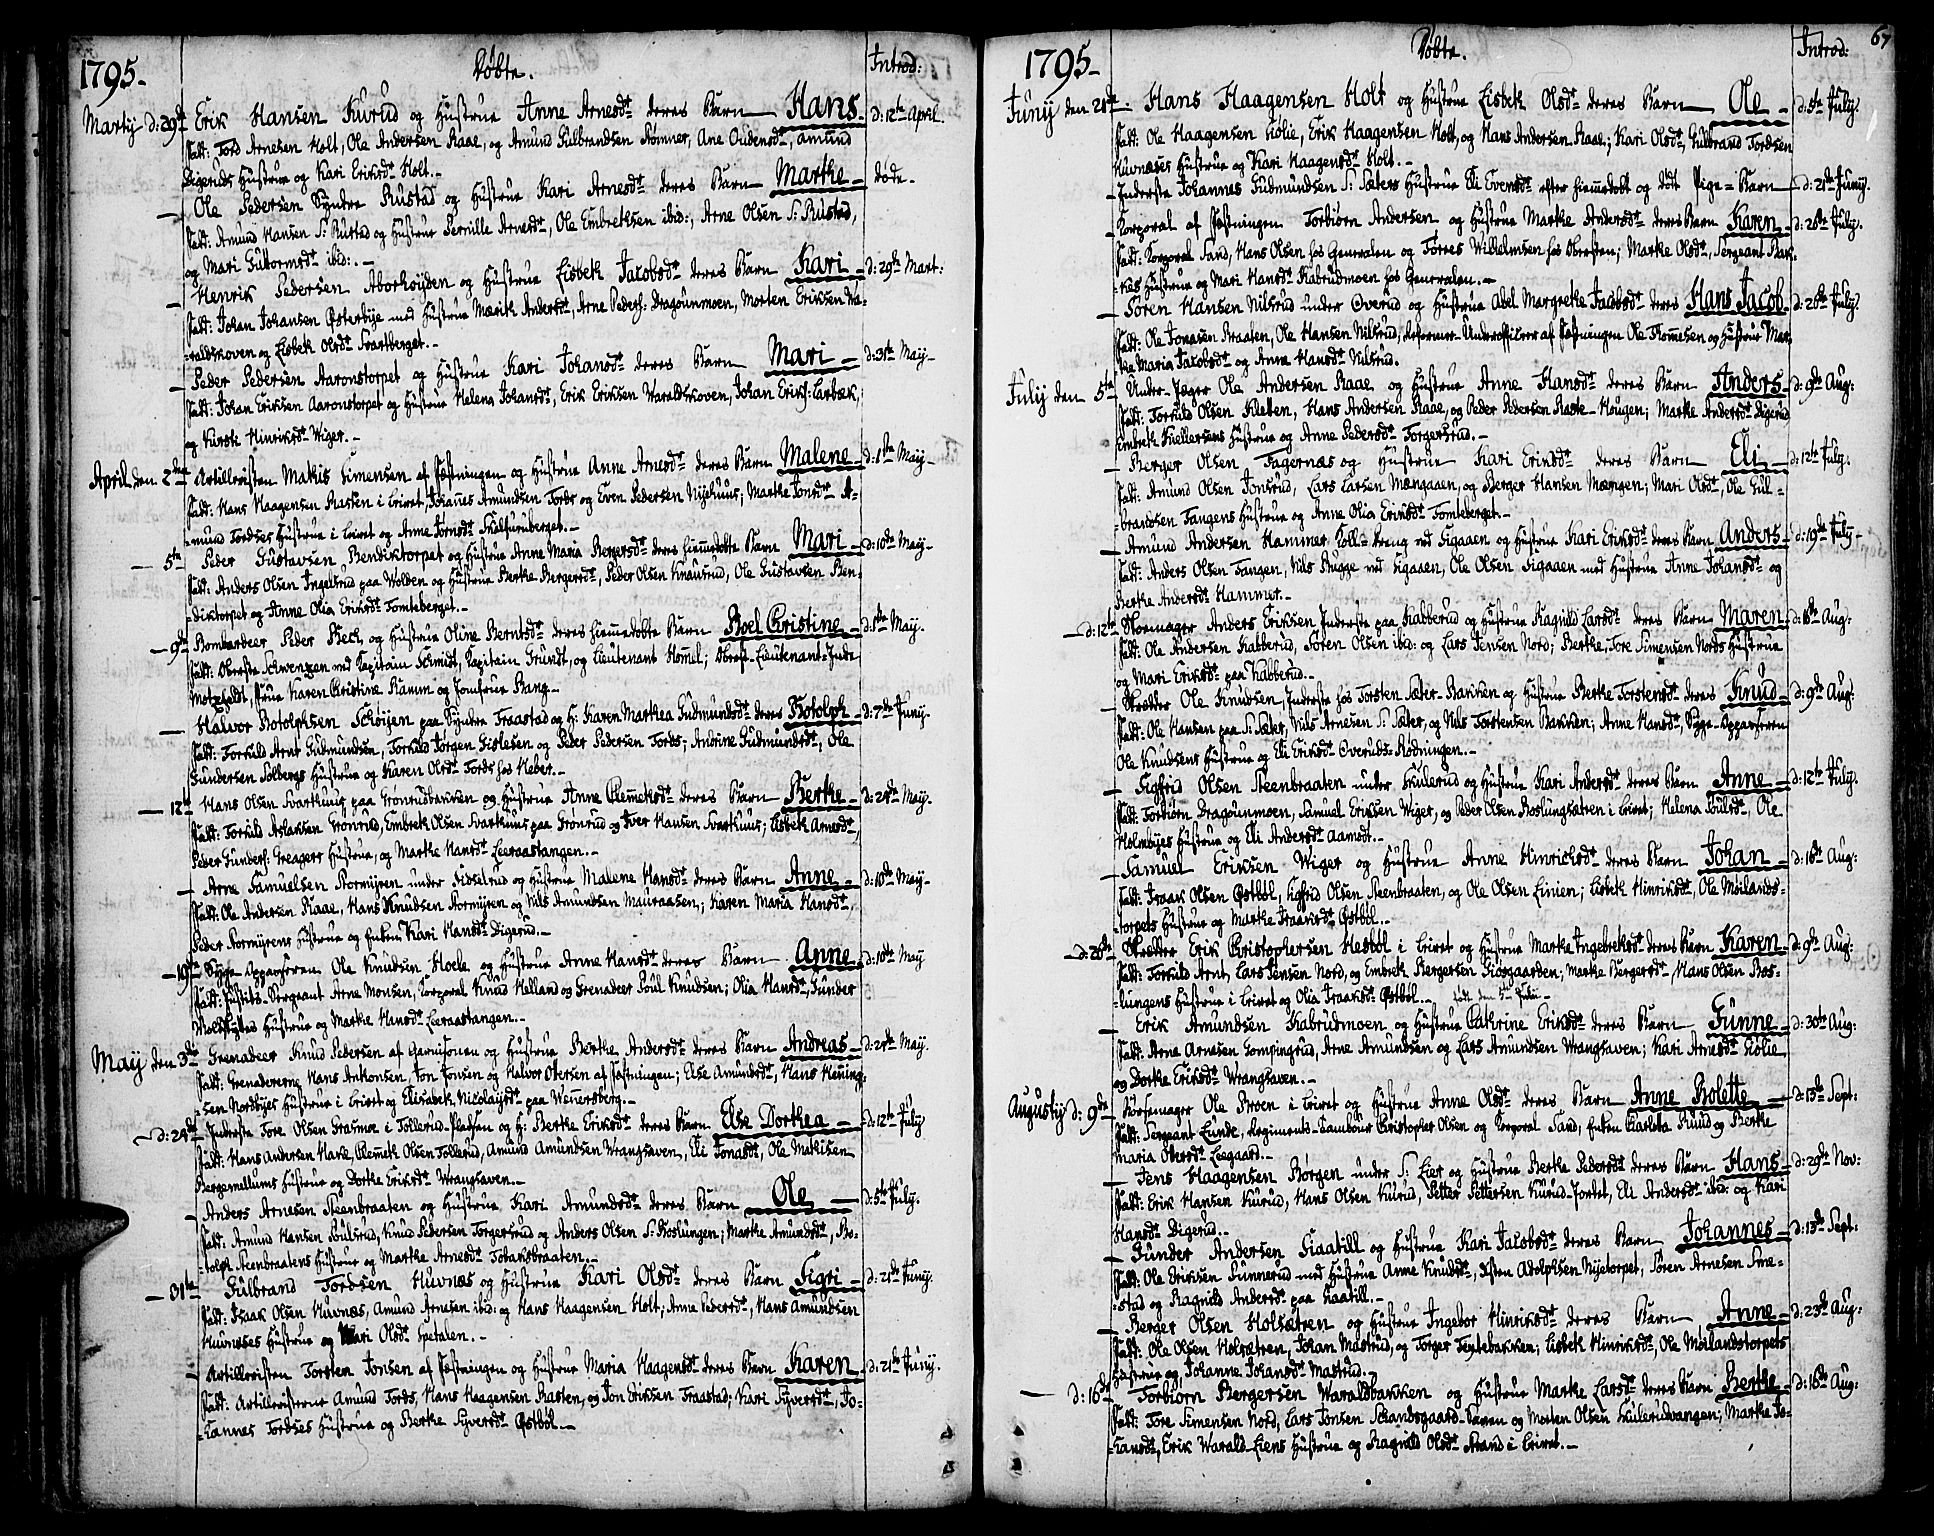 1795.
Døbte.
Introd:
Martÿ d: 29de Erik Hansen Kurud og Hustrue Anne Arnesdt deres Barn Hans d: 12te April.
Fadd: Tord Arnesen Holt, Ole Andersen Raae, og Amund Gulbrandsen Rømmer, Ane Oudensdt, Amund
Digeruds Hustrue og Kari Eriksdt Holt.
Ole Pedersen Syndre Rustad og Hustrue Kari Arnesdt deres Barn Marthe døde
Fadd: Amund Hansen S: Rustad og Hustrue Pernille Arnesdt, Ole Embrethsen ibid:, Arne Olsen S: Rustad,
og Mari Guttormsdt ibid:.
Henrik Pedersen Aborhøÿden og Hustrue Lisbet Jacobsdt deres Barn Kari d: 29de Mart:
Fadd: Johan Johansen Østerbÿe med Hustrue Marith Andersdt, Arne Peders: Dragounmoen, Morten Eriksen Wa-
raldskoven og Lisbet Olsdt Svartberget.
Peder Pedersen Aaronstorpet og Hustrue Kari Johansdt deres Barn Mari d: 31te Maÿ
Fadd: Johan Eriksen Aaronstorpet og Hustrue Helena Johansdt, Erik Eriksen Waraldskoven, Johan Eriks: Larbæk,
og Kirsti Hinriksdt Wiger.
April den 2den Artilleristen Mathis Simensen af Fæstningen og Hustrue Anne Arnesdt deres Barn Malene d: 1ste Maÿ
Fadd: Hans Haagensen Rasten i Leiret, Johanes Amundsen Torbr og Even Pedersen Nÿehuus; Marthe Jonsdt A-
mund Tordses Hustrue i Leiret og Anne Jørnsdt Skulturuberget.
5te Peder Gustavsen Bendiktorpet og Hustrue Anne Maria Bergersdt deres hiemedøbte Barn Mari d: 10de Maÿ
Fadd: Anders Olsen Ingelsrud paa Wolden og Hustrue Berthe Bergersdt, Peder Olsen Knausrud, Ole Gustavsen Ben-
diktorpet og Anne Olia Eriksdt Tomteberget.
9de Bombardeer Peder Beck og Hustrue Oline Berntsdt deres hiemedøbte Barn Boel Christine d: 1ste Maÿ.
Fadd: Oberste Schwenzen med Kapitain Schmidt, Kapitain Grundt, og Lieutenant Homel; Oberst-Lieutenant-Inde
Motzfeldt, Frue Karen Christine Ramm og Jomfrue Bang.
Halvor Botolphsen Schøÿen paa Syndre Traastad og H: Karen Marthea Gudmundsdt deres Botolph d: 7de Junÿ.
Fadd: Torkild Arnt Gudmundsen, Torkild Jørgen Gislesen og Peder Pedersen Tords; Andrine Gudmundsdt, Ole
Gundersen Solbergs Hustrue og Karen Olsdt Tords hos Heber.
12te Hans Olsen Svarthuus paa Grønrudbakken og Hustrue Anne Clemetsdt deres Barn Berthe d: 24de Maÿ.
Fadd: Torkild Aslaksen Grønrud, Embret Olsen Svarthuus paa Grønrud og Iver Hansen Svarthuus; Lisbet Arnesdt,
Peder Gunders: Greagers Hustrue, og Marthe Hansdt Leeraastangen.
Arne Samuelsen Stormÿren under Sidselrud og Hustrue Malene Hansdt deres Barn Anne d: 10de Maÿ
Fadd: Ole Andersen Raae, Hans Knudsen Stormÿren og Nils Amundsen Mauraasen,; Karen Maria Hansdt,
Peder Stormÿrens Hustrue og Enken Kari Hansdt Digerud.
19de Syge-Oppasseren Ole Knudsen Hoele og Hustrue Anne Hansdt deres Barn Anne d: 10de Maÿ
Fadd: Justits-Sergeant Arne Monsen, Korporal Knud Helland og Grenadeer Poul Knudsen; Olia Hansdt, Gunder
Moldhÿttes Hustrue og Marthe Hansdt Leeraastangen.
Maÿ den 3die Grenadeer Knud Pedersen af Garnisonen og Hustrue Berthe Andersdt deres Barn Andreas d: 24de Maÿ.
Fadd: Grenadererne Hans Antonsen, Jon Jonsen og Halvor Ottersen af Fæstningen; Else Amundsdt, Hans Hening-
sen Nordbÿes Hustrue i Leiret og Elisabet Nicolaÿsdt paa Wenersberg.
d: 24de Inderste Tore Olsen Grasmoe i Tollerud-Pladsen og H: Berthe Eriksdt deres Barn Else Dorthea d: 12te Julÿ
Fadd: Hans Andersen Harve, Clemet Olsen Tollerud, Amund Amundsen Wranghaven, Eli Jonasdt, Ole Mathisen
Bergemellums Hustrue og Dorthe Eriksdt Wranghaven.
Anders Arnesen Steenbraaten og Hustrue Kari Amundsdt deres Barn Ole d: 5te Julÿ.
Fadd: Amund Hansen Poulsrud, Knud Pedersen Torgersrud og Anders Olsen S: Roslungen; Marthe Amundsdt, Bo-
tolph Steenbraatens Hustrue og Marthe Arnesdt Tobaksbraaten.
31te Gulbrand Tordsen Huvnæs og Hustrue Kari Olsdt deres Barn Sigri d: 21de Junÿ.
Fadd: Isaak Olsen Huvnæs, Amund Arnesen ibid: og Hans Haagensen Holt; Anne Pedersdt, Hans Amundsen
Huvnæses Hustrue og Mari Olsdt Spetalen.
Artilleristen Torsten Jonsen af Fæstningen og Hustrue Maria Haagensdt deres Barn Karen d: 21de Junÿ.
Fadd: Artilleristerne Amund Tords, Hans Haagensen Rasten, og Jon Eriksen Traastad; Kari Syversdt, Jo-
hannes Tordses Hustrue og Berthe Syversdt Østbøl.
67
1795.
Døbte.
Introd:
Junÿ den 21de Hans Haagensen Holt og Hustrue Lisbet Olsdt deres Barn Ole d: 5te Julÿ
Fadd: Ole Haagensen Giølie, Erik Haagensen Holt, og Hans Andersen Raae.; Kari Olsdt, Gulbrand Tordsen
Huvnæses Hustrue og Kari Haagensdt Holt.
Inderste Johannes Gudmundsen S: Sæters Hustrue Eli Evensdt efter hiemedøbt og dødt Pige-Barn d: 21de Junÿ.
Korporal af Fæstningen Torbiørn Andersen og Hustrue Marthe Andersdt deres Barn Karen d: 26de Julÿ.
Fadd: Korporal Sand, Hans Olsen hos Generalen og Torres Wilhelmsen hos Obersten; Marthe Olsdt, Sergeant Bak-
kes Hustrue og Mari Hansdt Kabrudmoen hos Generalen.
Søren Hansen Nilsrud under Overud og Hustrue Abel Margrethe Jacobsdt deres Hans Jacob d: 26de Julÿ
Fadd: Ole Jonasen Braaten, Ole Hansen Nilsrud, Reformer-Underofficeer af Fæstningen Ole Thomesen og Hustrue Mar-
the Maria Jacobsdt og Anne Hansdt Nilsrud.
Julÿ den 5te Under-Jæger Ole Andersen Raae og Hustrue Anne Hansdt deres Barn Anders d: 9de Aug:
Fadd: Torkild Olsen Kletten, Hans Andersen Raae, og Peder Pedersen Raste-Hougen; Marthe Andersdt Digerud
Embret Kiellersens Hustrue og Anne Pedersdt Torgersrud.
Berger Olsen Fagernæs og Hustrue Kari Eriksdt deres Barn Eli d: 12te Julÿ.
Fadd: Amund Olsen Jonsrud, Lars Larsen Mængaaen, og Berger Hansen Mængen; Mari Olsdt, Ole Gul-
brandsen Tangens Hustrue og Anne Olia Eriksdt Tomteberget.
Amund Andersen Hammer Koll-Streng ved Sigaaen og Hustrue Kari Eriksdt deres Barn Anders d: 19de Julÿ
Fadd: Anders Olsen Tangen, Nils Bugge ved Sigaaen, Ole Olsen Sigaaen med Hustrue Anne Johansdt og
Berthe Andersdt Hammer.
d: 12te Skoemager Anders Eriksen Inderste paa Kabberud og Hustrue Ragnild Larsdt deres Barn Maren d: 16de Aug:
Fadd: Ole Andersen Kabberud, Søren Olsen ibid: og Lars Jensen Nord; Berthe, Tore Simensen Nords Hustrue
og Mari Eriksdt paa Kabberud.
Skrædder Ole Knudsen, Inderste hos Torsten Sæter-Bakken og Hustrue Berthe Torstensdt deres Knud d: 9de Aug:
Fadd: Ole Hansen paa S: Sæter, Nils Arnesen S: Sæter, og Nils Torstensen Bakken; Anne Hansdt, Syge-Oppasseren
Ole Knudsens Hustrue og Eli Eriksdt Overuds-Rødningen.
Sigfrid Olsen Steenbraaten under Skulerud og Hustrue Kari Andersdt deres Barn Anne d: 12te Julÿ.
Fadd: Torbiørn Dragounmoen, Samuel Eriksen Wiger, og Peder Olsen Roslungsætren i Leiret; Helena Poulsdt, Ole
Holmbÿes Hustrue og Eli Andersdt Aamodt.
Samuel Eriksen Wiger og Hustrue Anne Hinrichsdt deres Barn Johan d: 16de Aug:
Fadd: Isaak Olsen Østbøl, Sigfrid Olsen Steenbraaten, og Ole Olsen Linien; Lisbet Hinriksdt, Ole Møilands-
torpets Hustrue og Marthe Isaaksdt Østbøl.
d: 26de Skrædder Erik Christophersen Hesbøl i Leiret og Hustrue Marthe Ingebretsdt deres Barn Karen d: 9de Aug:
Fadd: Torkild Arnt, Lars Jensen Nord, og Embret Bergersen Giøsgaarden; Marthe Bergersdt, Hans Olsen Ros-
lungens Hustrue i Leiret og Olia Isaaksdt Østbøl.
født den 5te Julii
Erik Amundsen Kabrudmoen og Hustrue Cathrine Eriksdt deres Barn Gunne d: 30te Aug:
Fadd: Arne Arnesen Gompingrud, Arne Amundsen og Lars Amundsen Wranghaven; Kari Arnesdt Giølie
og Dorthe Eriksdt Wranghaven.
Augustÿ d: 9de Kørfemager Ole Broen i Leiret og Hustrue Anne Olsdt deres Barn Anne Bolette d: 13de Sept:
Fadd: Sergeant Lunde, Regiments-Tambour Christopher Olsen og Korporal Sand, Enken Charlota Kuud og Berthe
Maria Obersdt Leegaard.
Jens Haagensen Børgen under S: Lier og Hustrue Berthe Pedersdt deres Barn Hans d: 29de Nov:
Fadd: Erik Hansen Kurud, Hans Olsen Kurud, Petter Pettersen Kurud-Jordet, Eli Andersdt ibid: og Kari
Hansdt Digerud.
Gunder Andersen Giaatill og Hustrue Kari Jacobsdt deres Barn Johannes d: 13de Sept:
Fadd: Ole Eriksen Sunnerud med Hustrue Anne Knudsdt, Østen Adolphsen Nÿetorpet, Søren Arnesen Sme-
stad og Ragnild Andersdt paa Gaatill.
Berger Olsen Holsætren og Hustrue Ingebor Hinriksdt deres Barn Anne d: 23de Aug:
Fadd: Ole Olsen Holsætren, Johan Mastrud, og Torger Teÿtebakken; Lisbet Hinriksdt, Ole Møilandstorpets
Hustrue og Johanne Johansdt Mastrud.
d: 16de Torbiørn Bergersen Waraldbakken og Hustrue Marthe Larsdt deres Barn Berthe d: 16de Aug:
Fadd: Tore Simensen Nord, Lars Jonsen Schandsgaard-Karen og Morten Olsen Skulerudvangen; Marthe Jo-
hansdt, Erik Warald-Liens Hustrue og Ragnild Olsdt Strand i Leiret.